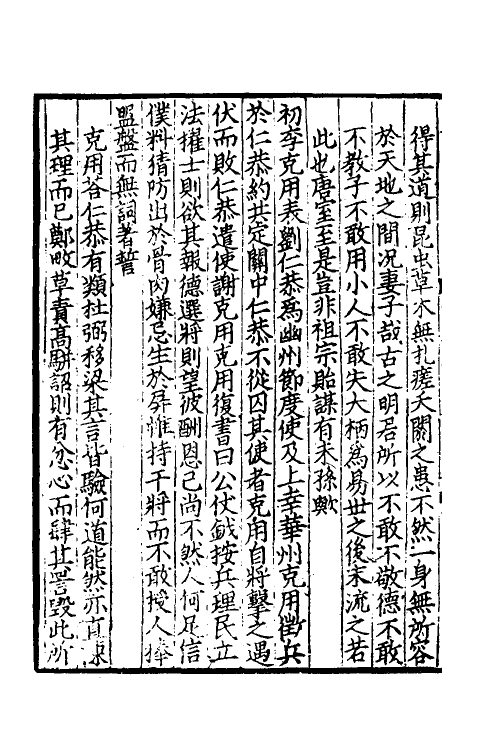 得其道則昆虫草木無扎瘥夭閼之患不然一身無所容
於天地之間况妻子哉古之明君所以不敢不敬德不敢
不教子不敢用小人不敢失大柄爲易世之後末流之若
此也唐室至是豈非祖宗貽謀有未孫歟
初李克用表劉仁恭爲幽州節度使及上幸華州克用徵兵
於仁恭約共定關中仁恭不從囚其使者克用自將擊之遇
伏而敗仁恭遣使謝克用克用復書曰公仗鉞按兵理民立
法擢士則欲其報德選將則望彼酬恩己尚不然人何足信
僕料猜防出於骨肉嫌忌生於屏帷持干將而不敢授人捧
盟盤而無詞著誓
克用荅仁恭有類杜弼移梁其言皆驗何道能然亦直
其理而已鄭畋草責高駢詔則有忿心而肆其詈毀此所